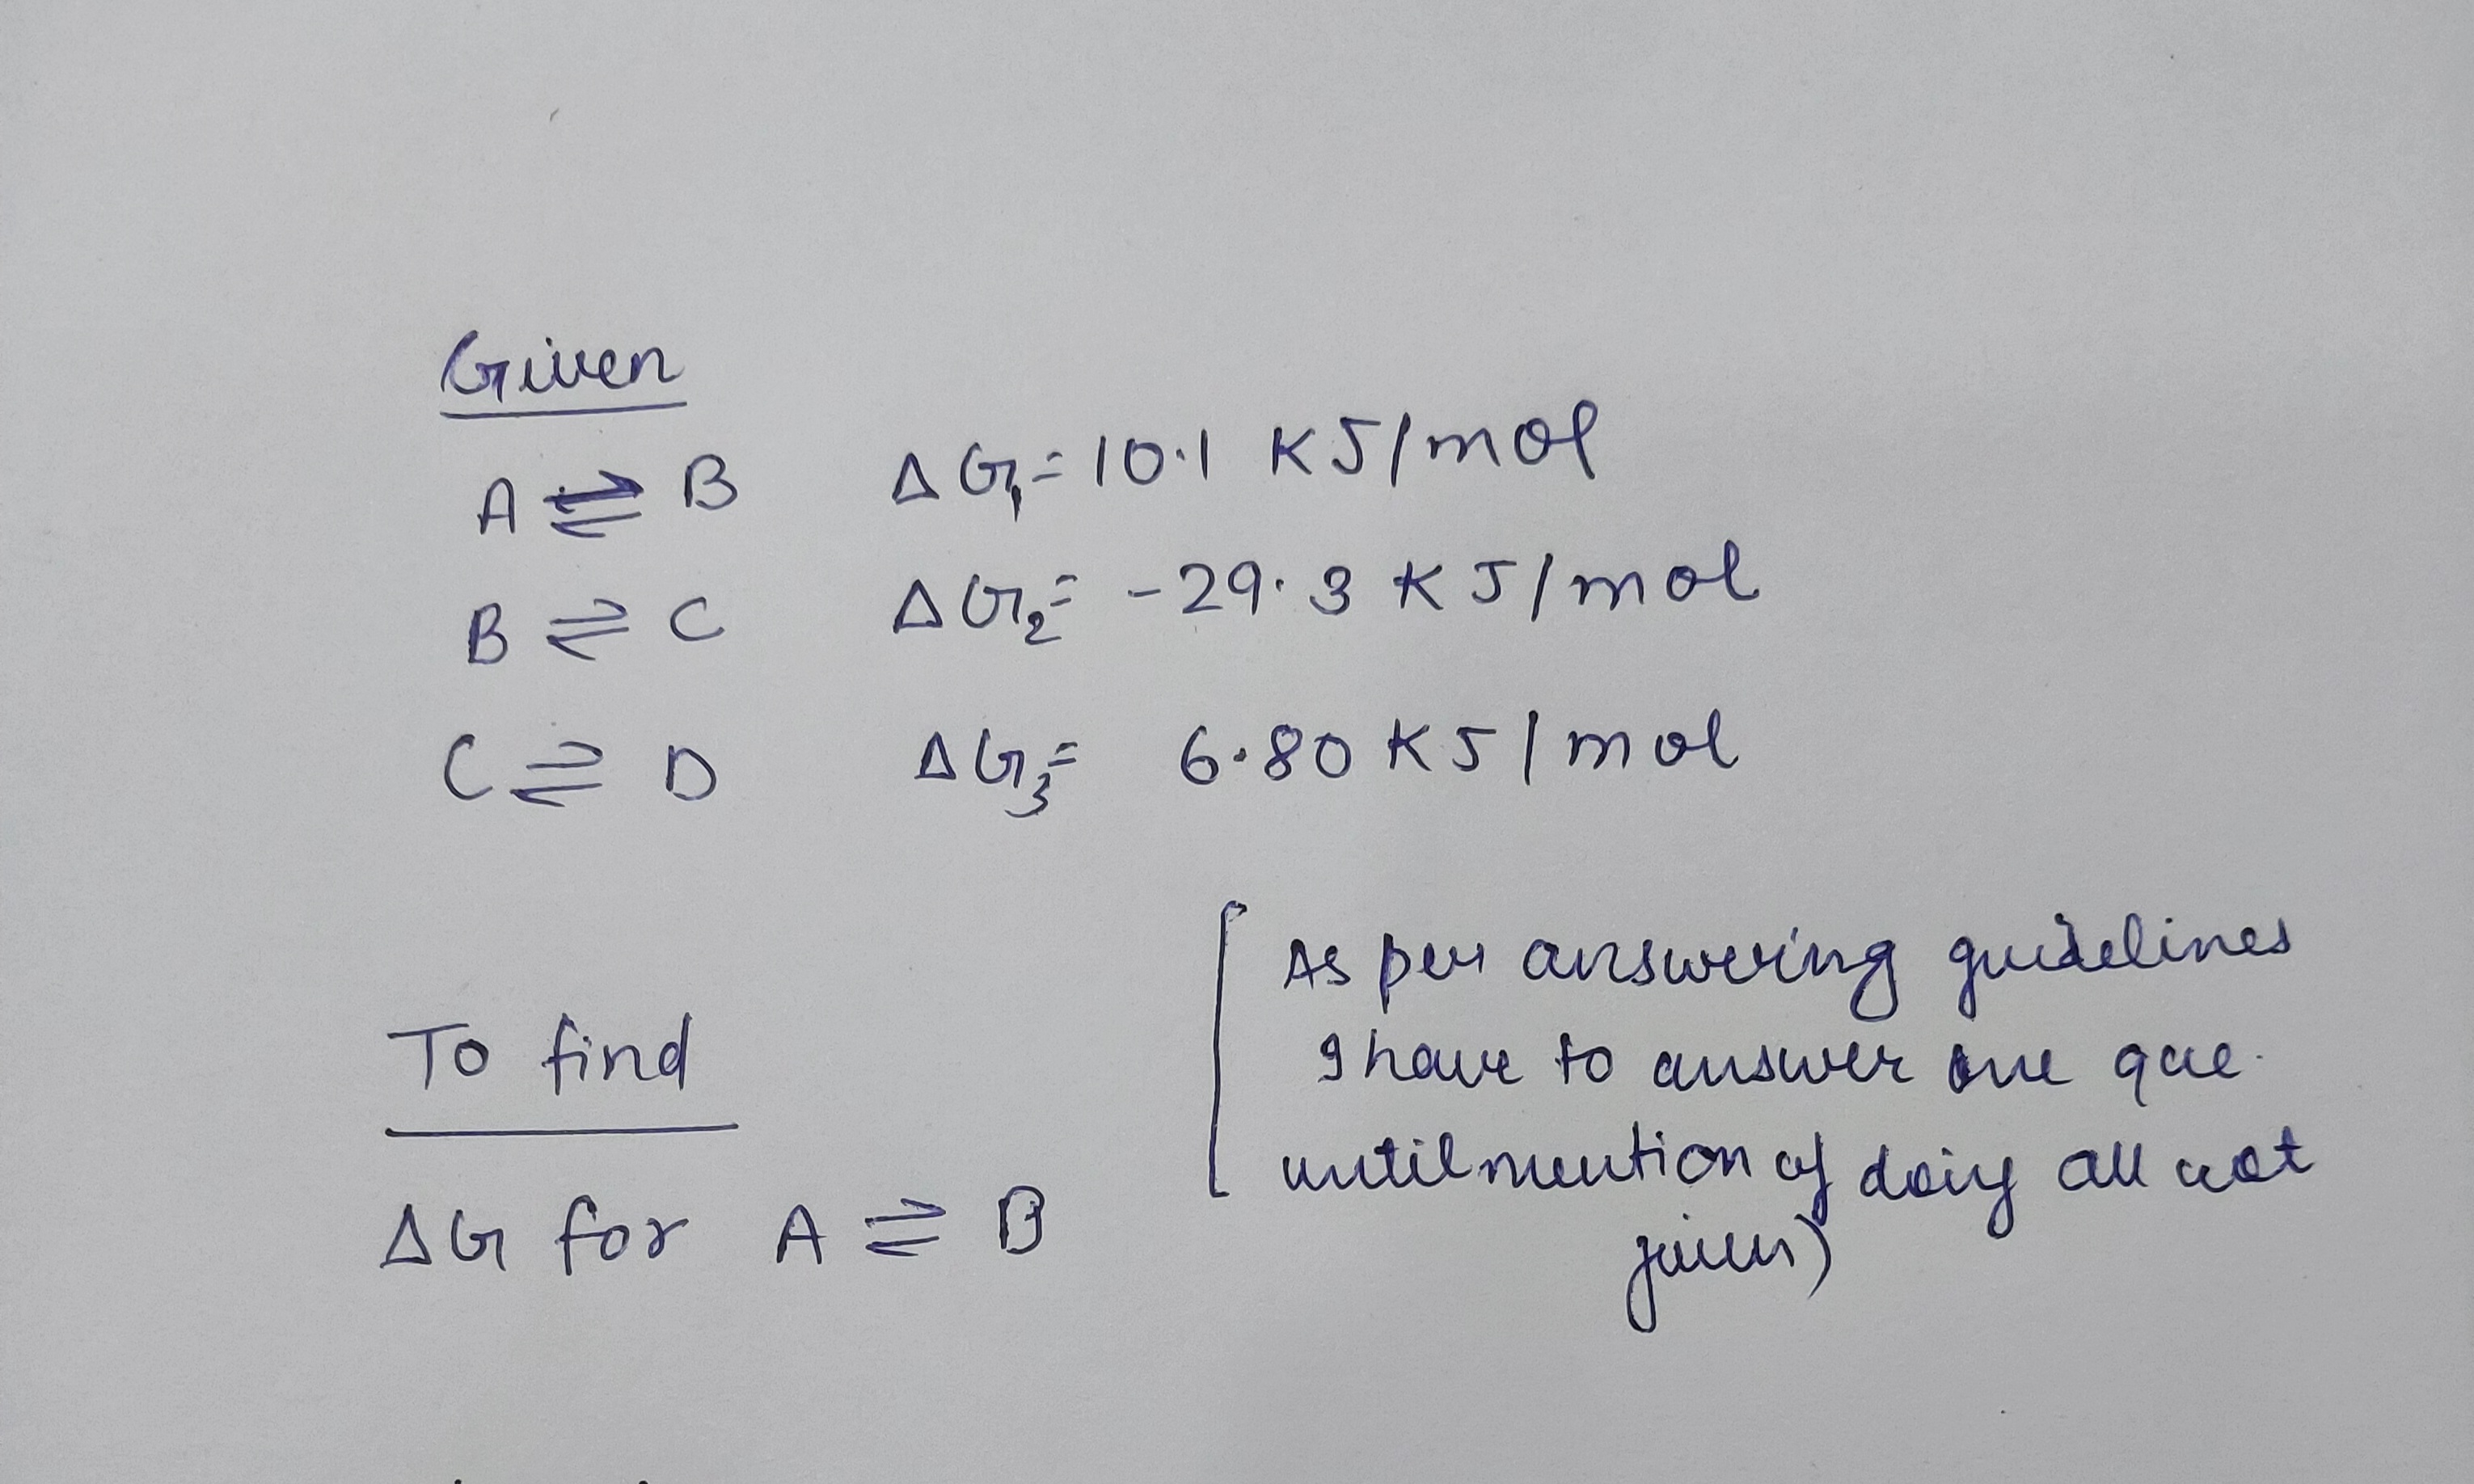 Given
A ⇌ B ΔG₁ = 10.1 KJ/mol
B ⇌ C ΔG₂ = -29.3 KJ/mol
C ⇌ D ΔG₃ = 6.80 KJ/mol
To find
ΔG for A ⇌ B
[As per answering guidelines
I have to answer one que.
until mention of doing all not
given)